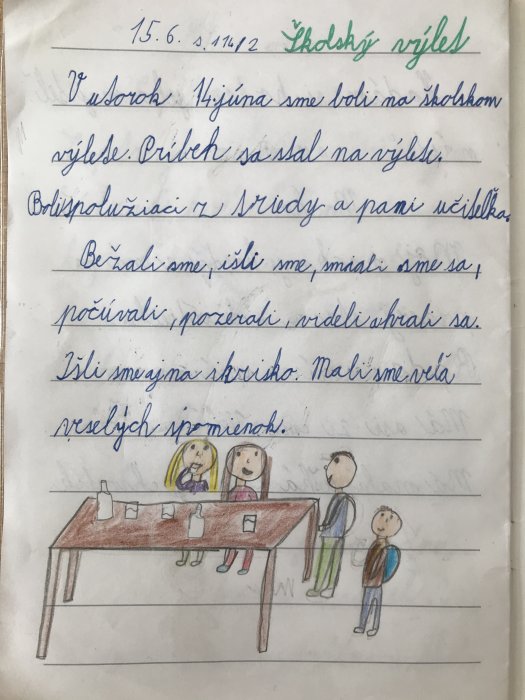 15.6. s.114/2 Školský výlet
V utorok 14. júna sme boli na školskom
výlete. Príbeh sa stal na výlete.
Boli spolužiaci z triedy a pani učiteľka.
Bežali sme, išli sme, smiali sme sa,
počúvali, pozerali, videli a hrali sa.
Išli sme aj na ihrisko. Mali sme veľa
veselých spomienok.